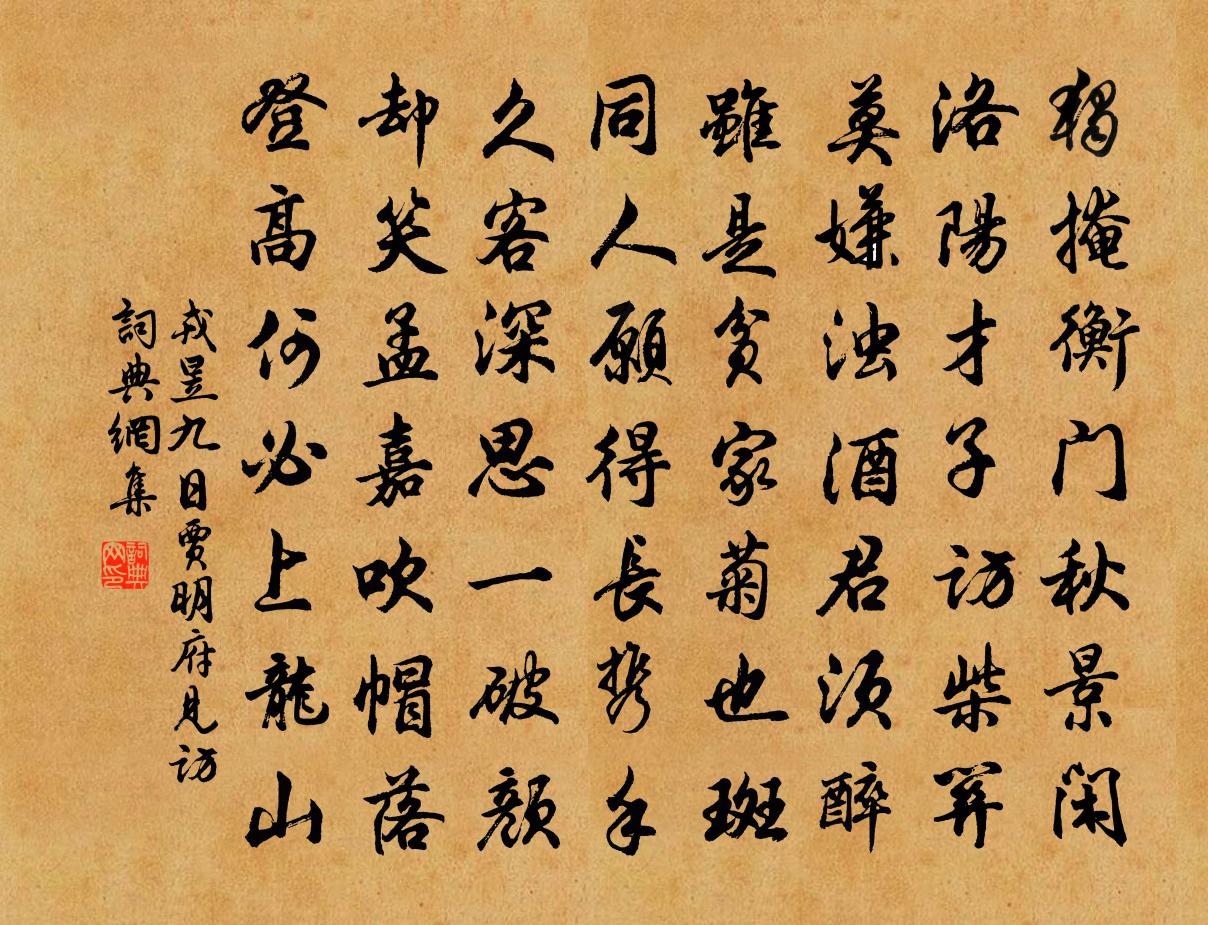 獨掩衡门秋景闲
洛陽才子访柴關
莫嫌浊酒君须醉
雖是贫家菊也斑
同人願得長携手
久客深思一破颜
却笑孟嘉吹帽落
登高何必上龍山
戎昱九日賈明府见访
詞典網集
詞典网印